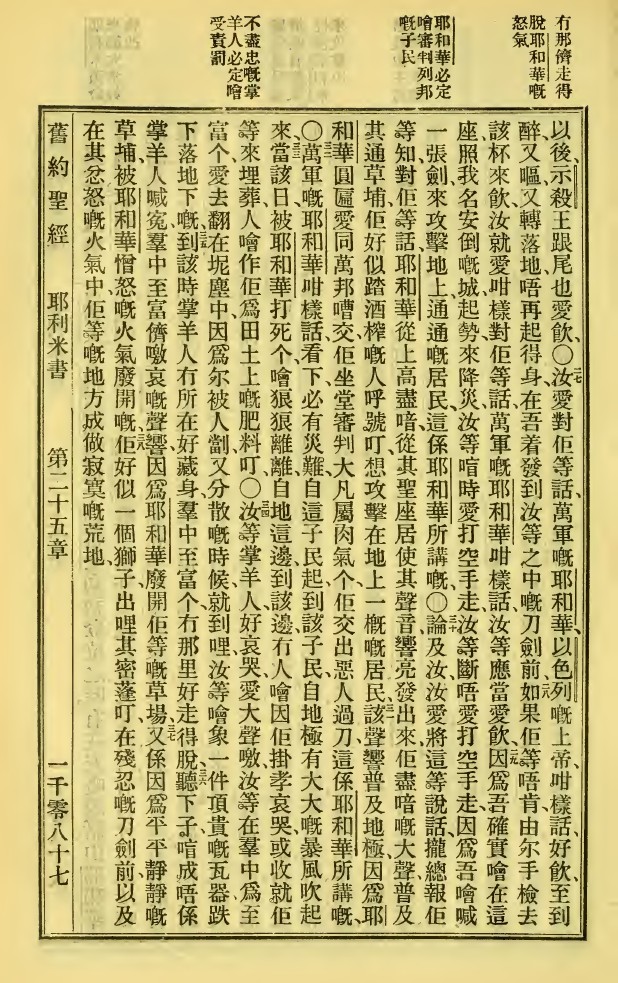 冇那儕走得
脫耶和華嘅
怒氣
耶和華必定
噲審判列邦
嘅子民
不盡忠嘅掌
羊人必定噲
受責罰
以後、示殺王跟尾也愛飲、〇汝愛對佢等話、萬軍嘅耶和華、以色列嘅上帝咁樣話、好飲至到
醉、又嘔、又轉落地、唔再起得身、在吾着發到汝等之中嘅刀劍前、如果佢等唔肯由尔手檢去
該杯來飲、汝就愛咁樣對佢等話、萬軍嘅耶和華咁樣話、汝等應當愛飲、因為吾確實噲在這
座照我名安倒嘅城起勢來降災、汝等喧時愛打空手走、汝等斷唔愛打空手走、因為吾噲喊
一張劍來攻擊地上通通嘅居民、這係耶和華所講嘅、〇論及汝、汝愛將這等說話攏總報佢
等知、對佢等話、耶和華從上高盡喑、從其聖座居使其聲音響亮發出來、佢盡喑嘅大聲普及
其通草埔、佢好似踏酒榨嘅人呼號叮、想攻擊在地上一槪嘅居民、該聲響普及地極、因為耶
和華圓圖愛同萬邦嘈交、佢坐堂審判大凡屬肉氣个、佢交出惡人過刀、這係耶和華所講嘅、
〇萬軍嘅耶和華咁樣話、看下必有災難、自這子民起到該子民、自地極有大大嘅暴風吹起
來、當該日被耶和華打死个噲狼狼離離自地這邊到該邊、冇人噲因佢掛孝哀哭、或收就佢
等來埋葬、人噲作佢為田土上嘅肥料叮、〇汝等掌羊人好哀哭、愛大聲噭、汝等在羣中為至
富个愛去翻在坭塵中、因為尔被人劏又分散嘅時候就到哩、汝等噲象一件頂貴嘅瓦器跌
下落地下嘅、到該時、掌羊人冇所在好藏身、羣中至富个冇那里好走得脫、聽下子、喧成唔係
掌羊人喊冤、羣中至富儕噭哀嘅聲響、因為耶和華廢開佢等嘅草場、又係因為平平靜靜嘅
草埔被耶和華憎怒嘅火氣廢開嘅、佢好似一個獅子出哩其密蓬叮、在殘忍嘅刀劍前、以及
在其忿怒嘅火氣中、佢等嘅地方成做寂寞嘅荒地、
舊約聖經 耶利米書 第二十五章 一千零八十七